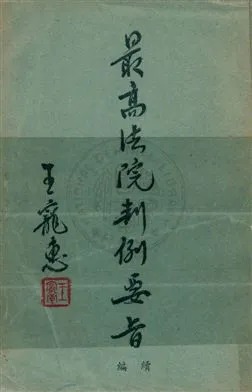 最高法院判例要旨
王寵惠
續編